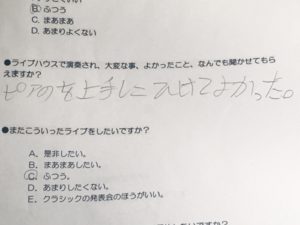 B. ふつう
C. まあまあ
D. あまりよくない
●ライブハウスで演奏され、大変な事、よかったこと、なんでも聞かせてもら
えますか?
ピアのを上手しこひけてよかった。
●またこういったライブをしたいですか?
A、是非したい。
B、まあまあしたい。
C、ふつう。
D、あまりしたくない。
E、クラシックの発表会のほうがいい。